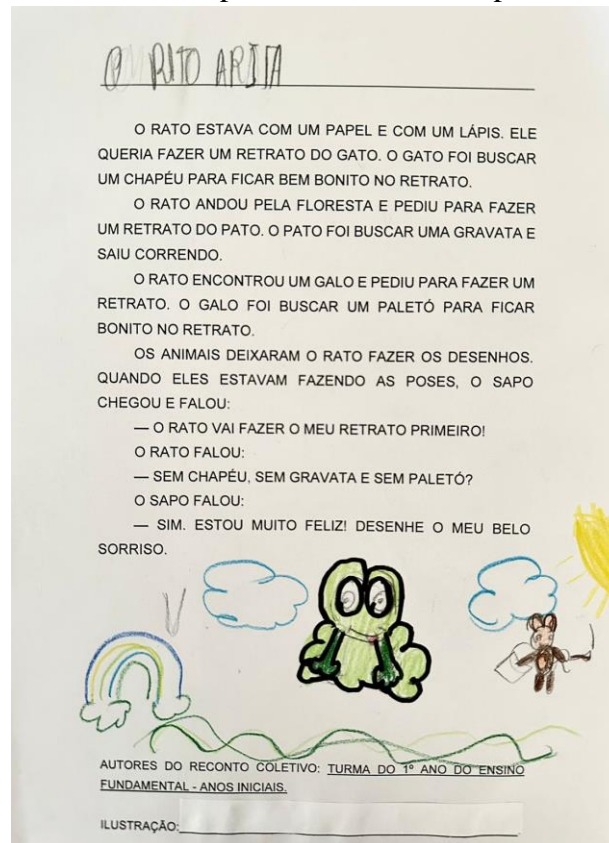 O RITO ARITA
O RATO ESTAVA COM UM PAPEL E COM UM LÁPIS. ELE
QUERIA FAZER UM RETRATO DO GATO. O GATO FOI BUSCAR
UM CHAPÉU PARA FICAR BEM BONITO NO RETRATO.
O RATO ANDOU PELA FLORESTA E PEDIU PARA FAZER
UM RETRATO DO PATO. O PATO FOI BUSCAR UMA GRAVATA E
SAIU CORRENDO.
O RATO ENCONTROU UM GALO E PEDIU PARA FAZER UM
RETRATO. O GALO FOI BUSCAR UM PALETÓ PARA FICAR
BONITO NO RETRATO.
OS ANIMAIS DEIXARAM O RATO FAZER OS DESENHOS.
QUANDO ELES ESTAVAM FAZENDO AS POSES, O SAPO
CHEGOU E FALOU:
— O RATO VAI FAZER O MEU RETRATO PRIMEIRO!
O RATO FALOU:
— SEM CHAPÉU, SEM GRAVATA E SEM PALETÓ?
O SAPO FALOU:
— SIM. ESTOU MUITO FELIZ! DESENHE O MEU BELO
SORRISO.
AUTORES DO RECONTO COLETIVO: TURMA DO 1º ANO DO ENSINO
FUNDAMENTAL - ANOS INICIAIS.
ILUSTRAÇÃO: